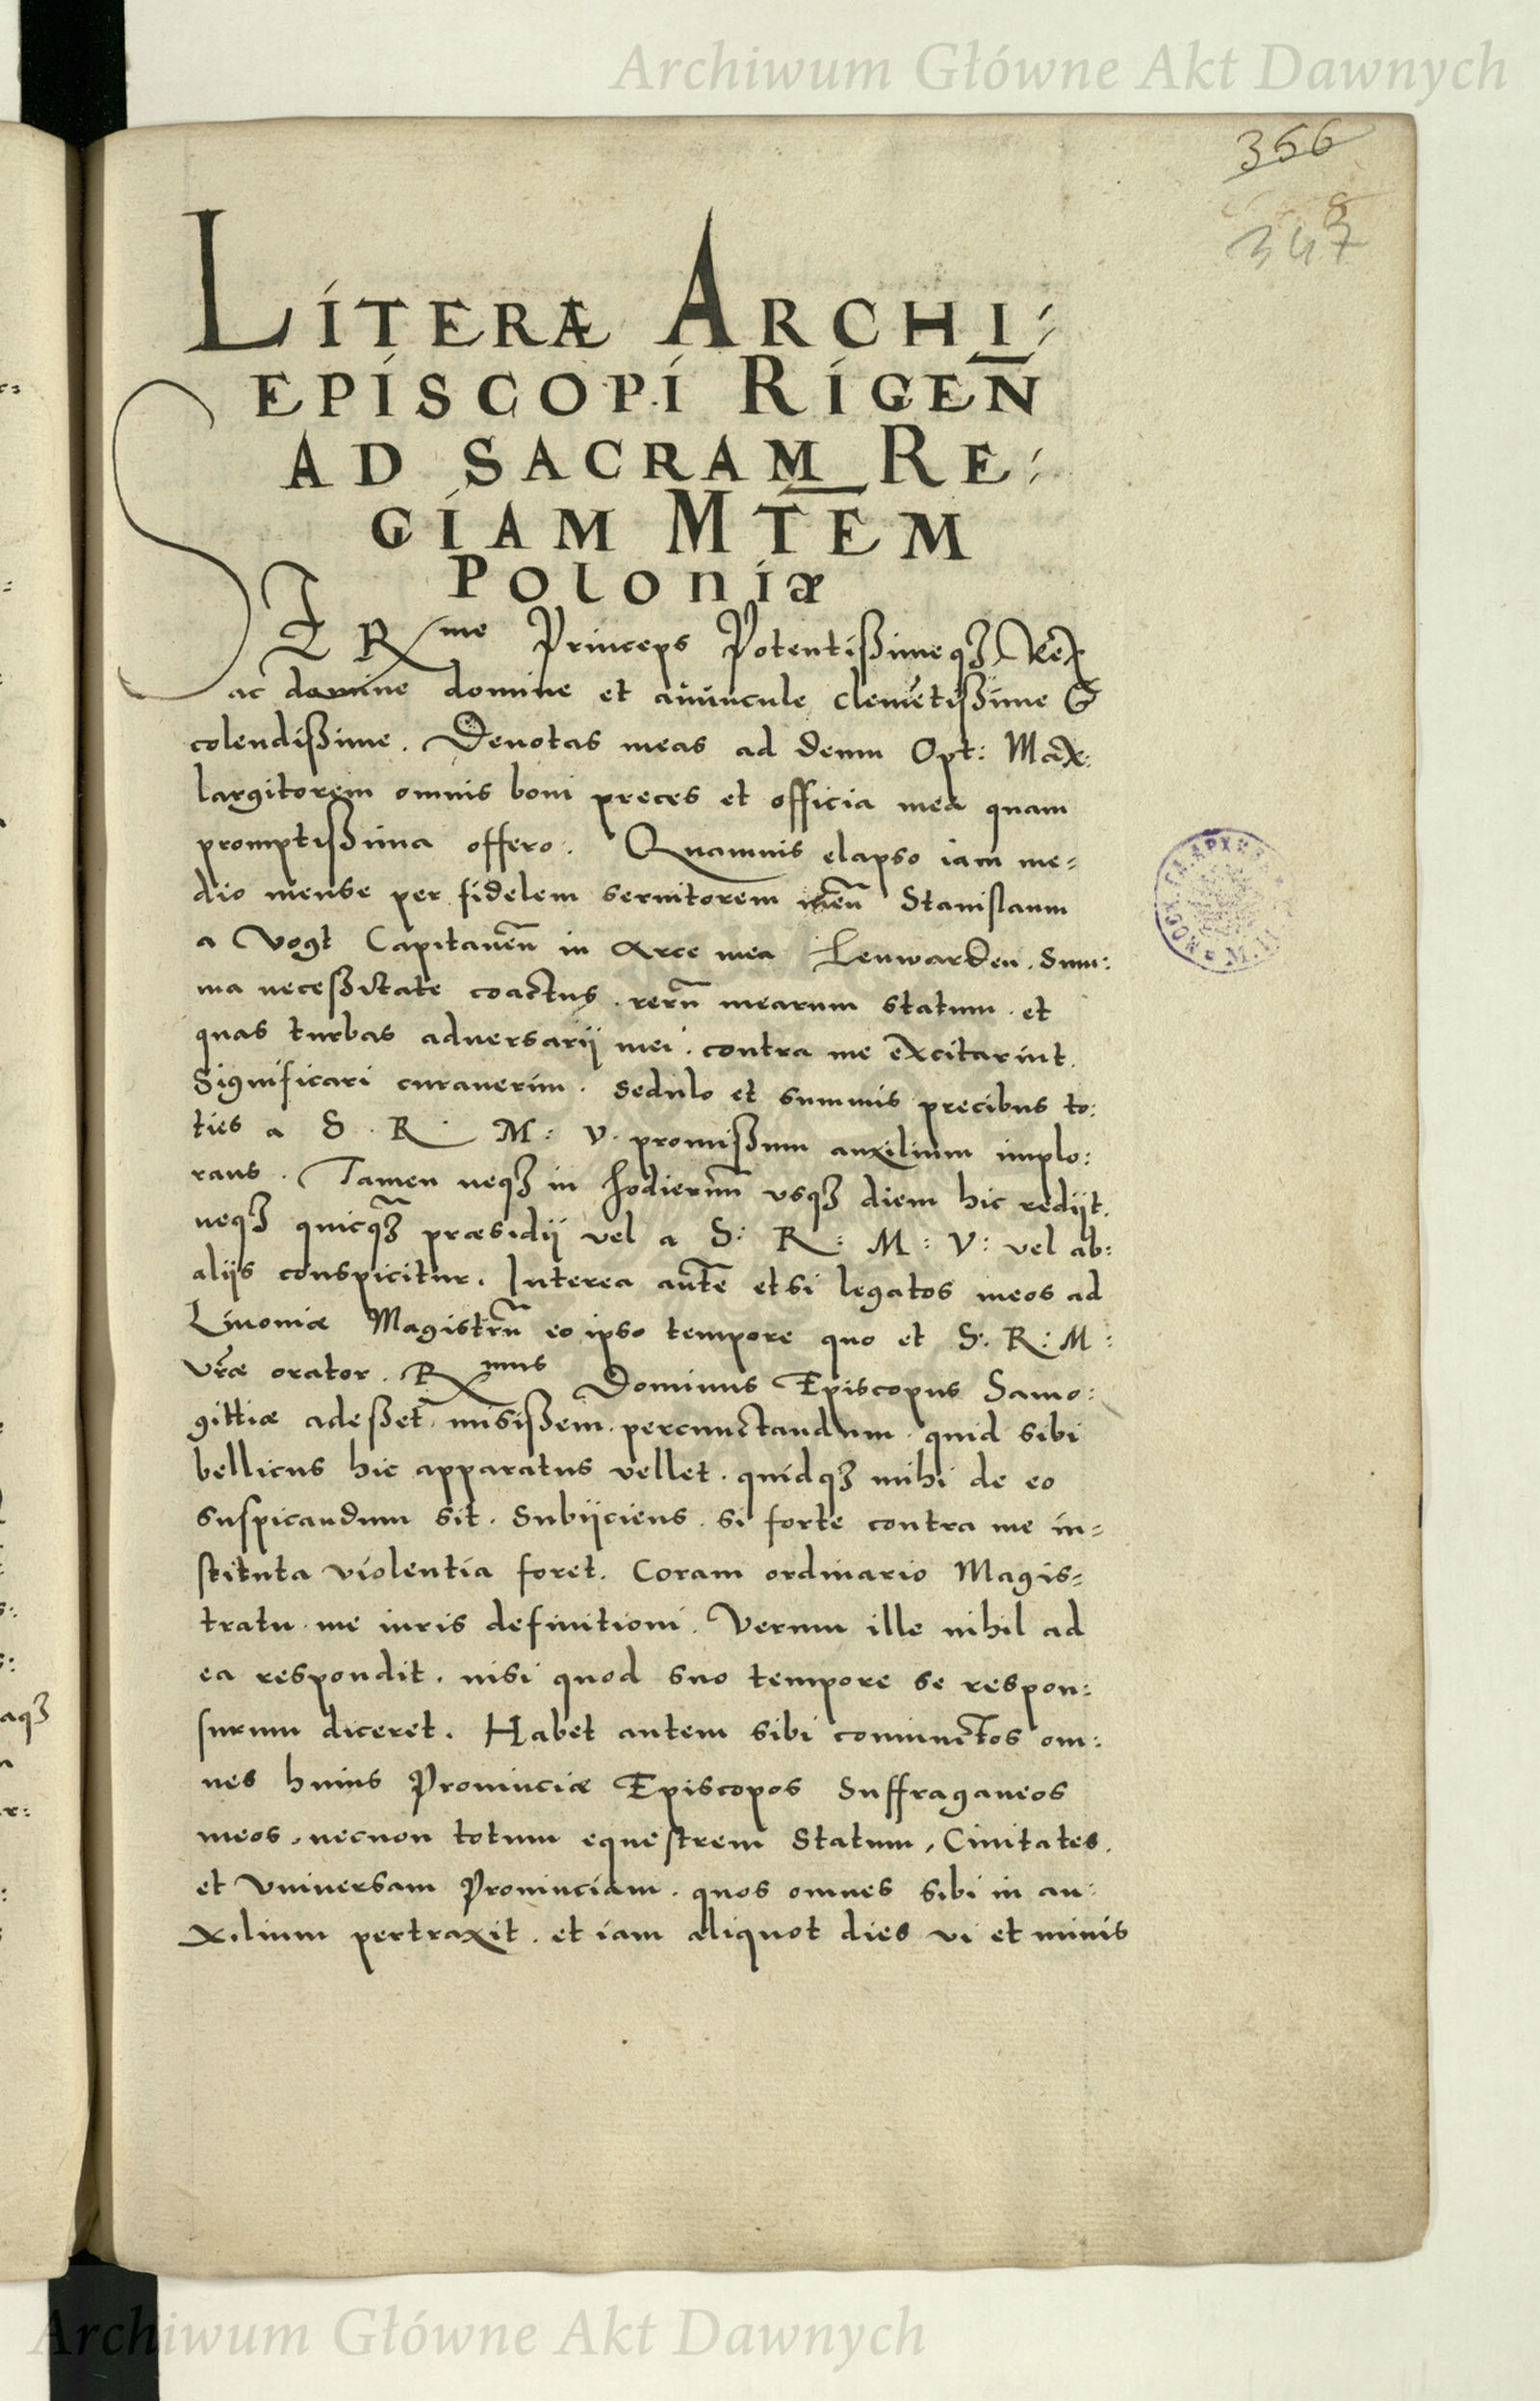 Archiwum Główne Akt Dawnych
366
347
8
LITERÆ ARCHI:
EPISCOPI RIGEÑ
AD SACRAM RE:
GIAM MT̅EM
POLONIÆ
SERme Princeps Potentißimeqꝫ Rex
ac domine domine et auuncule clemētißime &
colendißime. Deuotas meas ad deum Opt: Max:
largitorem omnis boni preces et officia mea quam
promptißima offero. Quamuis elapso iam me=
dio mense per fidelem seruitorem meū Stanislaum
a Vogt Capitaneū in Arce mea Lenwarden. Sum:
ma neceßitate coactus. rerū mearum statum. et
quas turbas aduersarij mei. contra me excitarint.
Significari curauerim. sedulo et summis precibus to:
ties a S. R. M: V. promißum auxilium implo:
rans. Tamen neqꝫ in hodiernū vsqꝫ diem hic redijt.
neqꝫ quicqꝫ præsidij vel a S: R: M: V: vel ab:
alijs conspicitur. Interea autē etsi legatos meos ad
Liuoniæ Magistrū eo ipso tempore quo et S: R: M:
Vræ orator. Rmus Dominus Episcopus Samo:
gittiæ adeßet. misißem. percunctandum. quid sibi
bellicus hic apparatus vellet. quidqꝫ mihi de eo
suspicandum sit. Subijciens. si forte contra me in=
stituta violentia foret. Coram ordinario Magis=
tratu. me iuris definitioni. Verum ille nihil ad
ea respondit. nisi quod suo tempore se respon:
surum diceret. Habet autem sibi coniunctos om:
nes huius Prouinciæ Episcopos Suffraganeos
meos. necnon totum equestrem Statum, Ciuitates.
et Vniuersam Prouinciam. quos omnes sibi in au:
xilium pertraxit. et iam aliquot dies vi et minis
Archiwum Główne Akt Dawnych